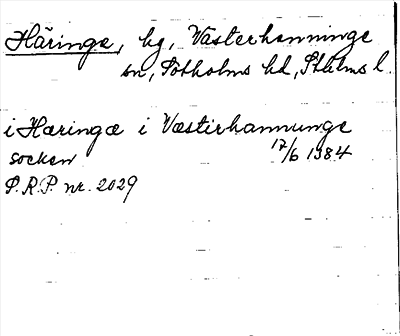 Häringe, hg, Västerhanninge
sn, Sotholms hd, Sthlms l.
i Hæringæ i Væstirhannunge
socken 17/6 1384
P.R.P. nr. 2029